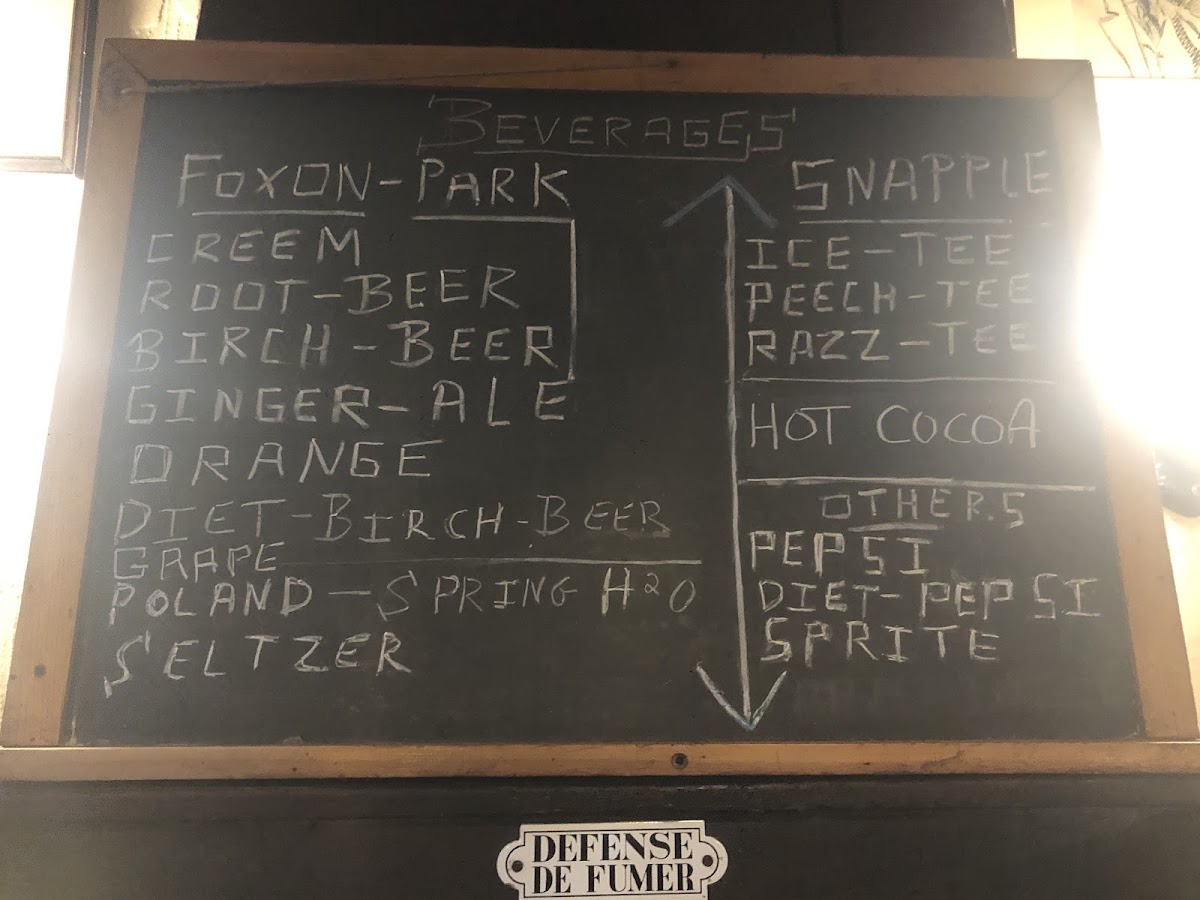 BEVERAGES
FOXON-PARK
CREEM
ROOT-BEER
BIRCH-BEER
GINGER-ALE
ORANGE
DIET-BIRCH-BEER
GRAPE
POLAND-SPRING H2O
SELTZER
SNAPPLE
ICE-TEE
PEECH-TEE
RAZZ-TEE
HOT COCOA
OTHERS
PEPSI
DIET-PEPSI
SPRITE
DEFENSE
DE FUMER